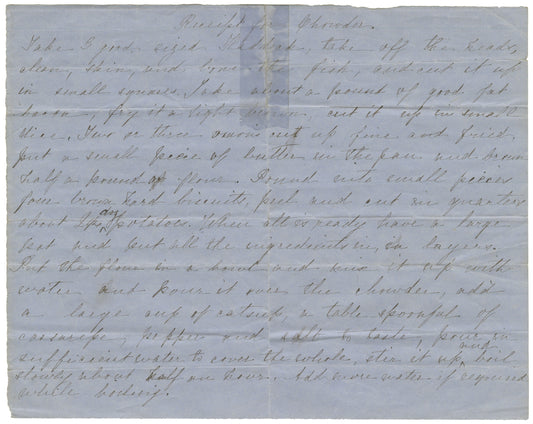 Receipt for Chowder.
Take 3 good sized Haddock, take off the heads,
clean, skin, and bone the fish, and cut it up
in small squares. Take about a pound of good fat
bacon, fry it a light brown, cut it up in small
dice. Two or three onions cut up fine and fried,
put a small piece of butter in the pan and brown
half a pound of flour. Pound into small pieces
four brown hard biscuits, peel and cut in quarters
about potatoes. When all is ready have a large
pot and put all the ingredients in, in layers.
Put the flour in a bowl and mix it up with
water and pour it over the chowder, add
a large cup of catsup, a table spoonful of
pepper and salt to taste, pour in
sufficient water to cover the whole, stir it up, and boil
slowly about half an hour. Add more water if required
while boiling.